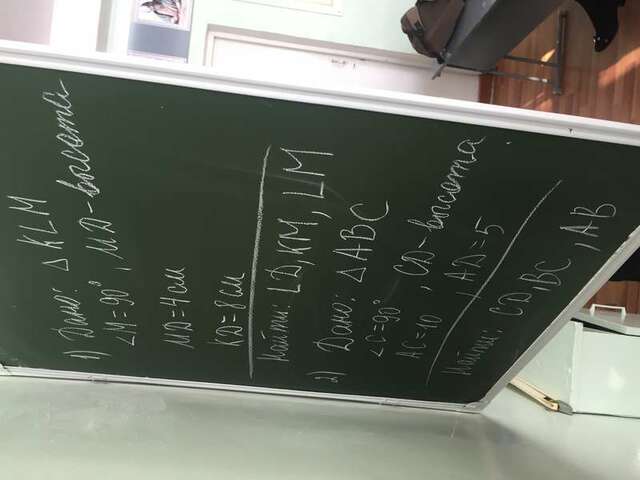 1) Дано: △KLM
∠M=90°, MD-высота
MD=4см
KD=8см
Найти: LD, KM, LM
2) Дано: △ABC
∠C=90°, CD-высота
AC=10, AD=5
Найти: CD, BC, AB